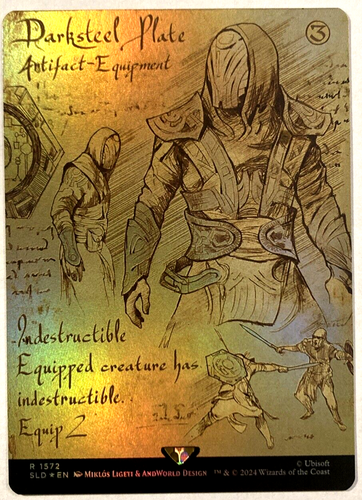 Darksteel Plate
3
Artifact-Equipment
Indestructible
Equipped creature has
indestructible.
Equip 2
R 1572
SLD ★ EN MIKLÓS LIGETI & ANDWORLD DESIGN
© Ubisoft
™ & © 2024 Wizards of the Coast